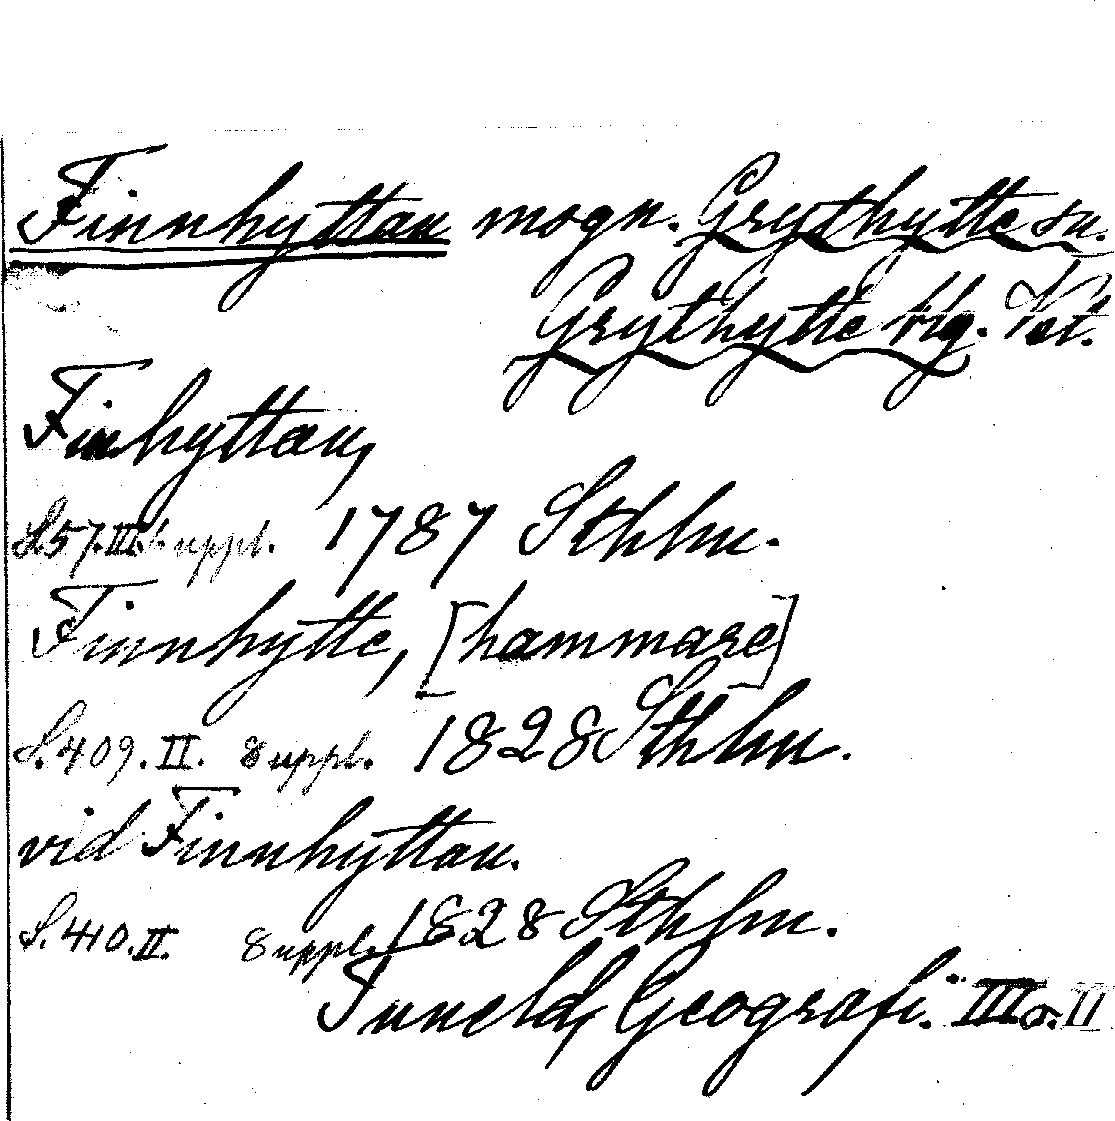 Finnhyttan mogn. Grythytte sn.
Grythytte blg. Vst.
Finhyttan,
S. 57. III. Suppl. 1787 Sthlm.
Finnhytte, [hammare]
S. 409. II. Suppl. 1828 Sthlm.
vid Finnhyttan.
S. 410. II. Suppl. 1828 Sthlm.
Tuneld, Geografi. III o. II